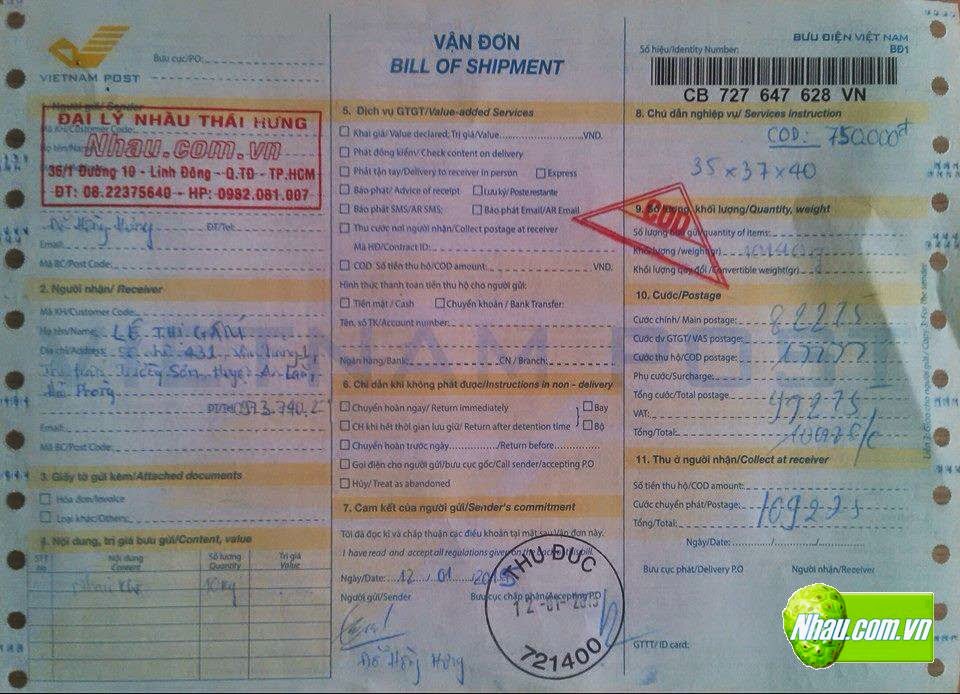 VIETNAM POST
Bưu cục/PO:
VẬN ĐƠN
BILL OF SHIPMENT
BƯU ĐIỆN VIỆT NAM
BĐ1
Số hiệu/Identity Number:
CB 727 647 628 VN
Người gửi/ Sender
Mã KH/Customer Code:
ĐẠI LÝ NHÀU THÁI HƯNG
Nhau.com.vn
35/1 Đường 10 - Linh Đông - Q.TĐ - TP.HCM
ĐT: 08.22375640 - HP: 0982.081.007
Đỗ Hồng Hưng
ĐT/Tel:
Email:
Mã BC/Post Code:
2. Người nhận/ Receiver
Mã KH/Customer Code:
Họ tên/Name: LÊ THỊ GẤM
Địa chỉ/Address: 431
Trường Sơn, Huyện An Lão,
Hải Phòng
Email:
Mã BC/Post Code:
3. Giấy tờ gửi kèm/Attached documents
Hóa đơn/Invoice
Loại khác/Others:
4. Nội dung, trị giá bưu gửi/Content, value
STT No
Nội dung Content
Số lượng Quantity
Trị giá Value
10kg
5. Dịch vụ GTGT/Value-added Services
Khai giá/ Value declared; Trị giá/Value VND.
Phát đồng kiểm/ Check content on delivery
Phát tận tay/Delivery to receiver in person Express
Báo phát/ Advice of receipt Lưu ký/ Poste restante
Báo phát SMS/AR SMS; Báo phát Email/AR Email
Thu cước nơi người nhận/Collect postage at receiver
Mã HĐ/Contract ID:
COD: Số tiền thu hộ/COD amount: VND.
Hình thức thanh toán tiền thu hộ cho người gửi:
Tiền mặt / Cash Chuyển khoản / Bank Transfer:
Tên, số TK/Account number
Ngân hàng/Bank: CN / Branch:
6. Chỉ dẫn khi không phát được/Instructions in non - delivery
Chuyển hoàn ngay/ Return immediately Bay
CH khi hết thời gian lưu giữ/ Return after detention time Bộ
Chuyển hoàn trước ngày /Return before
Gọi điện cho người gửi/bưu cục gốc/Call sender/accepting P.O
Hủy/ Treat as abandoned
7. Cam kết của người gửi/Sender's commitment
Tôi đã đọc kĩ và chấp thuận các điều khoản tại mặt sau Vận đơn này.
I have read and accept all regulations given on the back of this bill.
Ngày/Date: 12 / 01 / 2015
Người gửi/Sender
Bưu cục chấp nhận/Accepting P.O
Đỗ Hồng Hưng
THỦ ĐỨC
12-01-2015
721400
8. Chú dẫn nghiệp vụ/ Services instruction
COD: 750.000đ
35 x 37 x 40
COD
9. Số lượng, khối lượng/Quantity, weight
Số lượng bưu gửi/quantity of items:
Khối lượng /weight(gr)
Khối lượng quy đổi /Convertible weight(gr)
10. Cước/Postage
Cước chính/ Main postage: 82275
Cước dv GTGT/ VAS postage:
Cước thu hộ/COD postage:
Phụ cước/Surcharge:
Tổng cước/Total postage
VAT:
Tổng/Total:
11. Thu ở người nhận/Collect at receiver
Số tiền thu hộ/COD amount:
Cước chuyển phát/Postage: 109225
Tổng/Total:
Ngày/Date:
Bưu cục phát/Delivery P.O
Người nhận/Receiver
GTTT/ ID card:
VIETNAM POST
Nhau.com.vn